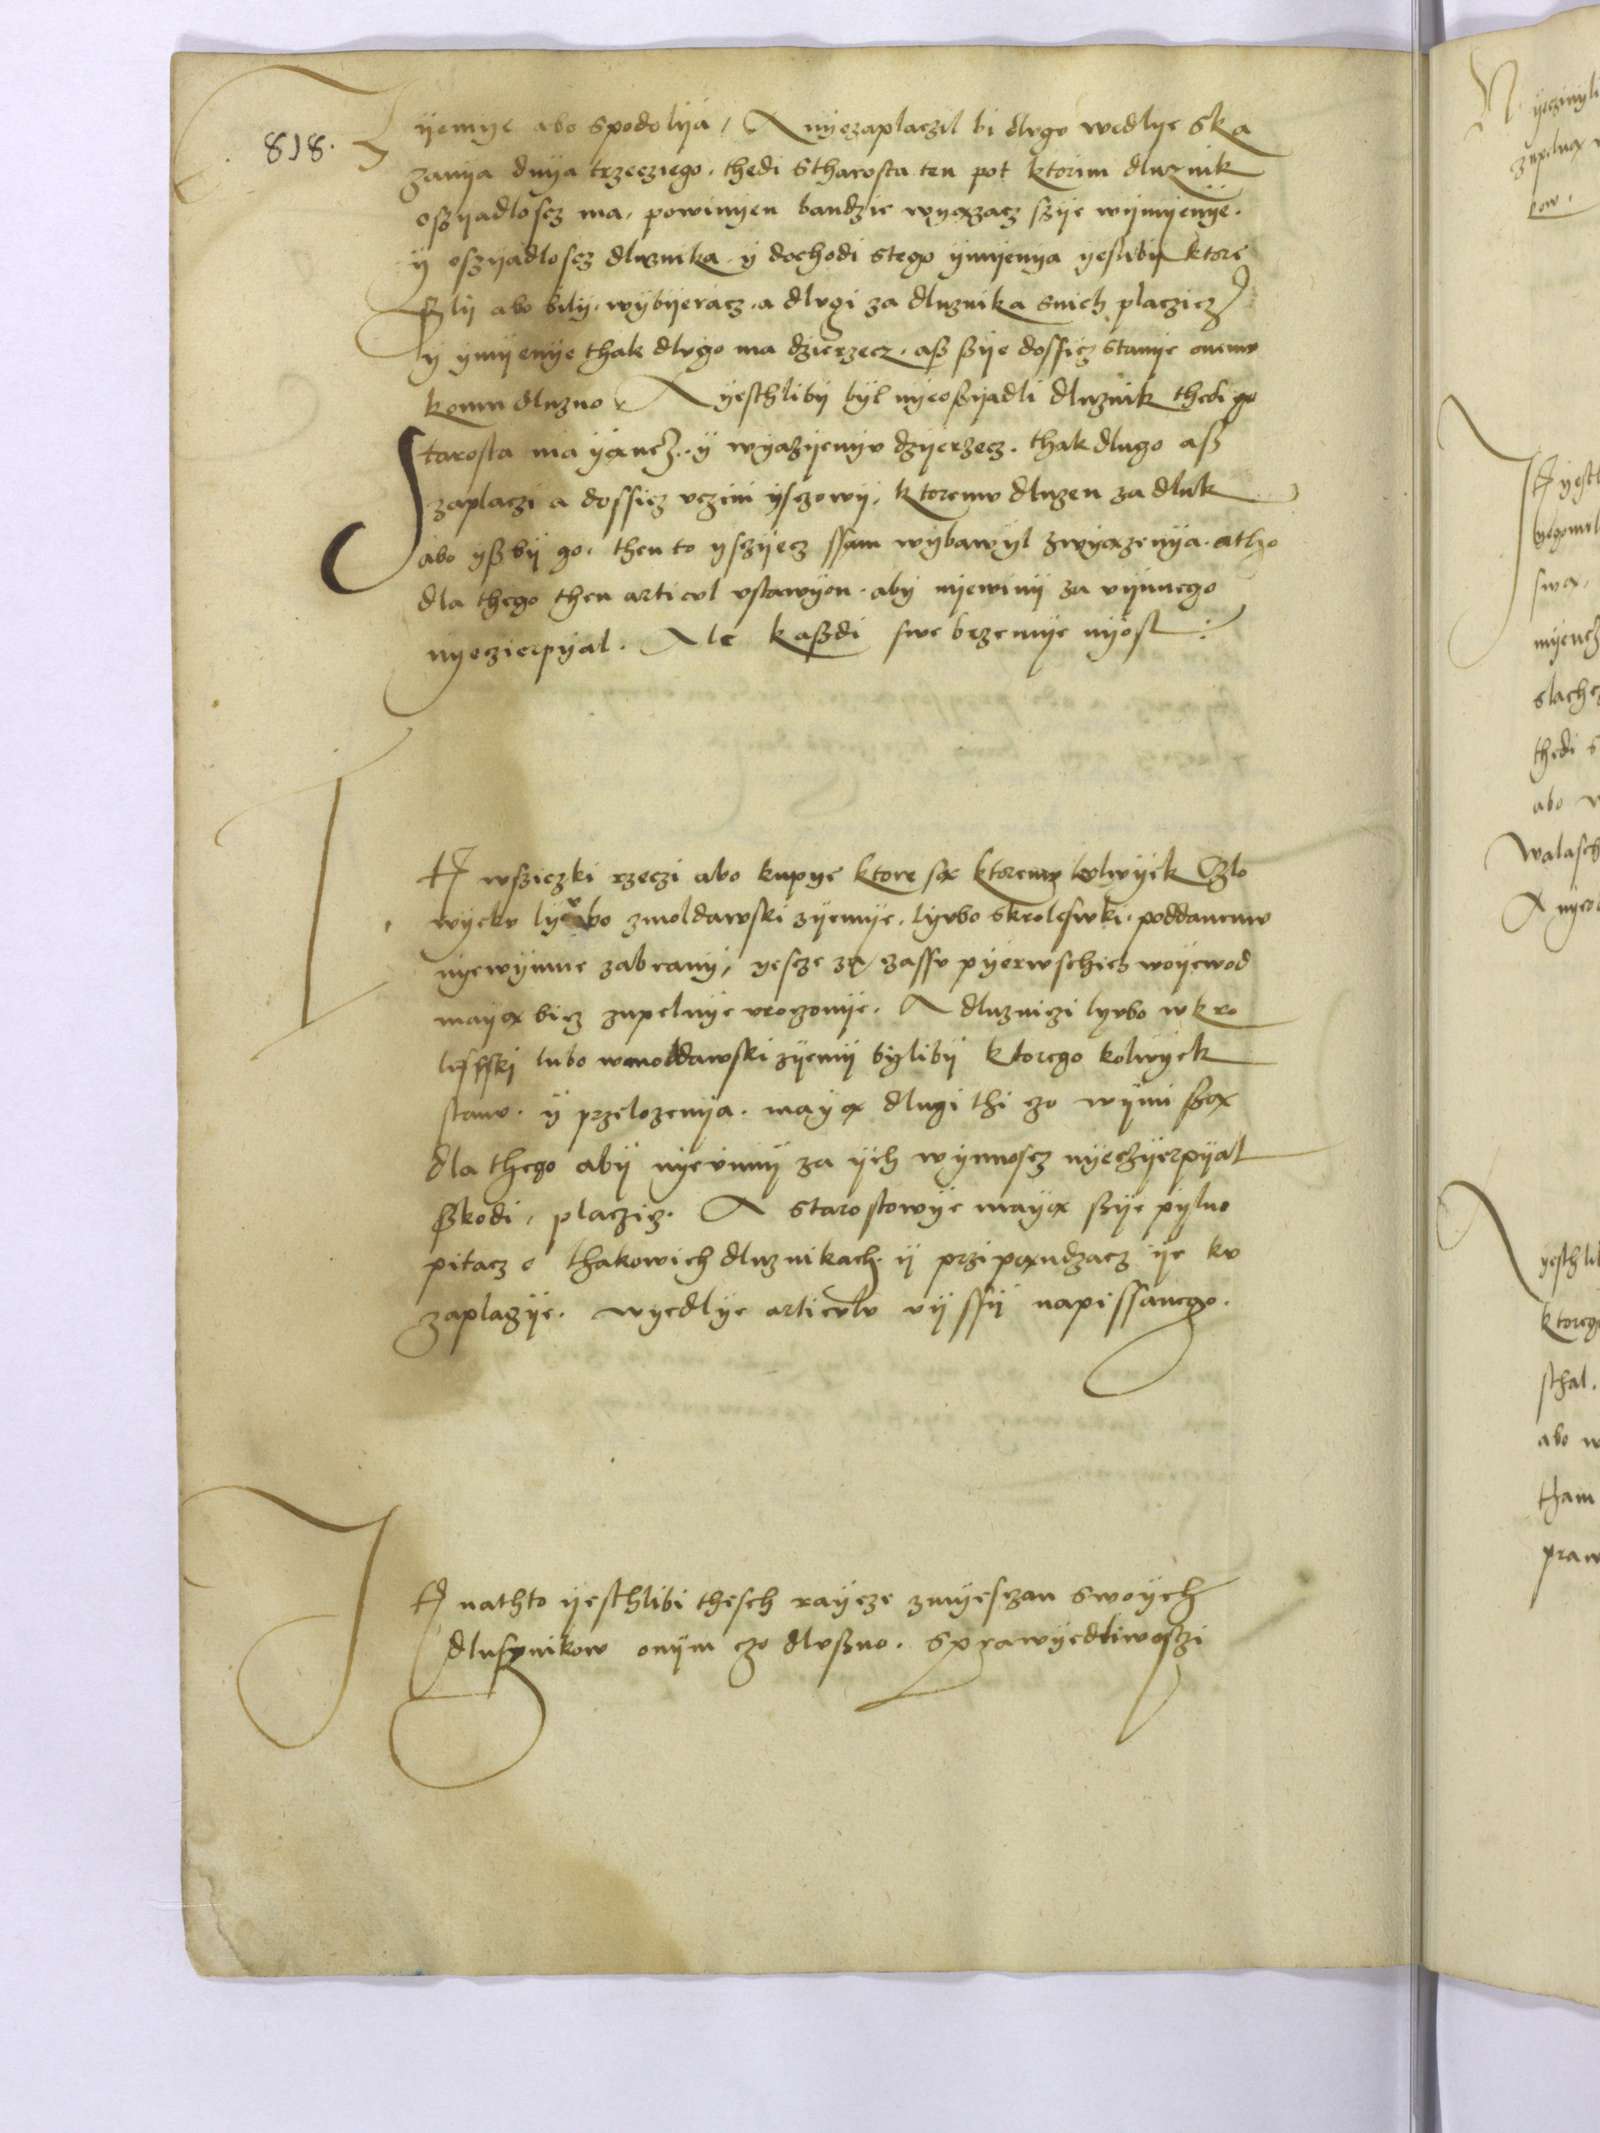 818.
Zyemye abo spodolya, A nyezaplaczil bi dlvgv wedlye ska
zanya dnya trzecziego. thedi Stharosta ten pot ktorim dluznik
oszyadloscz ma, powinyen bandzie wyązacz szye wymyenye.
y oszyadloscz dluznika, y dochodi stego ymyenya yeslibÿ ktore
szlÿ abo bilÿ. wÿbÿeracz. a dlvgi za dluznika snich placzicz
y ymyenye thak dlvgo ma dzierzecz. asz szye dossicz stanye onemv
komu dluzno. A yesthlibÿ bÿl nyeoszyadli dluznik thedi go
Starosta ma yąncz. y wyązyenyv dzyerzecz. thak dlugo asz
zaplaczi a dossicz vczini ysczowÿ, ktoremv dluzen za dluk
abo yszbÿ go. then to ysczyecz ssam wÿbawÿl zwyązenya. atho
dla thego then articvl vstawyon. abÿ nyewinÿ za vÿnnego
nyeczierpyal. Ale kaszdi swe brzemye nyosl
It wsziczki rzeczi abo kupye ktore są ktoremv kolwyek Czlo
wyekv lyvbo zmoldawski zyemye. lyvbo skrolestwki. poddanemv
nyewynne zabranÿ, yescze za zassv pyerwschich woyewod
mayą bicz zupelnye vroczonye. A dluzniczi lyvbo wkro
lestfski lubo wmoldawski zyemÿ bÿlibÿ ktorego kolwyek
stanv. y przelozenya. mayą dlugi thi czo wynni szą
dla thego abÿ nyevinnÿ za ÿch wynnoscz nyeczyerpyal
szkodi, placzicz. A starostowye mayą szye pylno
pitacz o thakowich dluznikach. y przipąndzacz ye kv
zaplazye. wyedlye articvlv vÿssÿ napissanego.
It nathto yesthlibi thesch raycze zmyesczan swoych
dlusznikow onÿm czo dlvszno. Sprawyedliwosczi